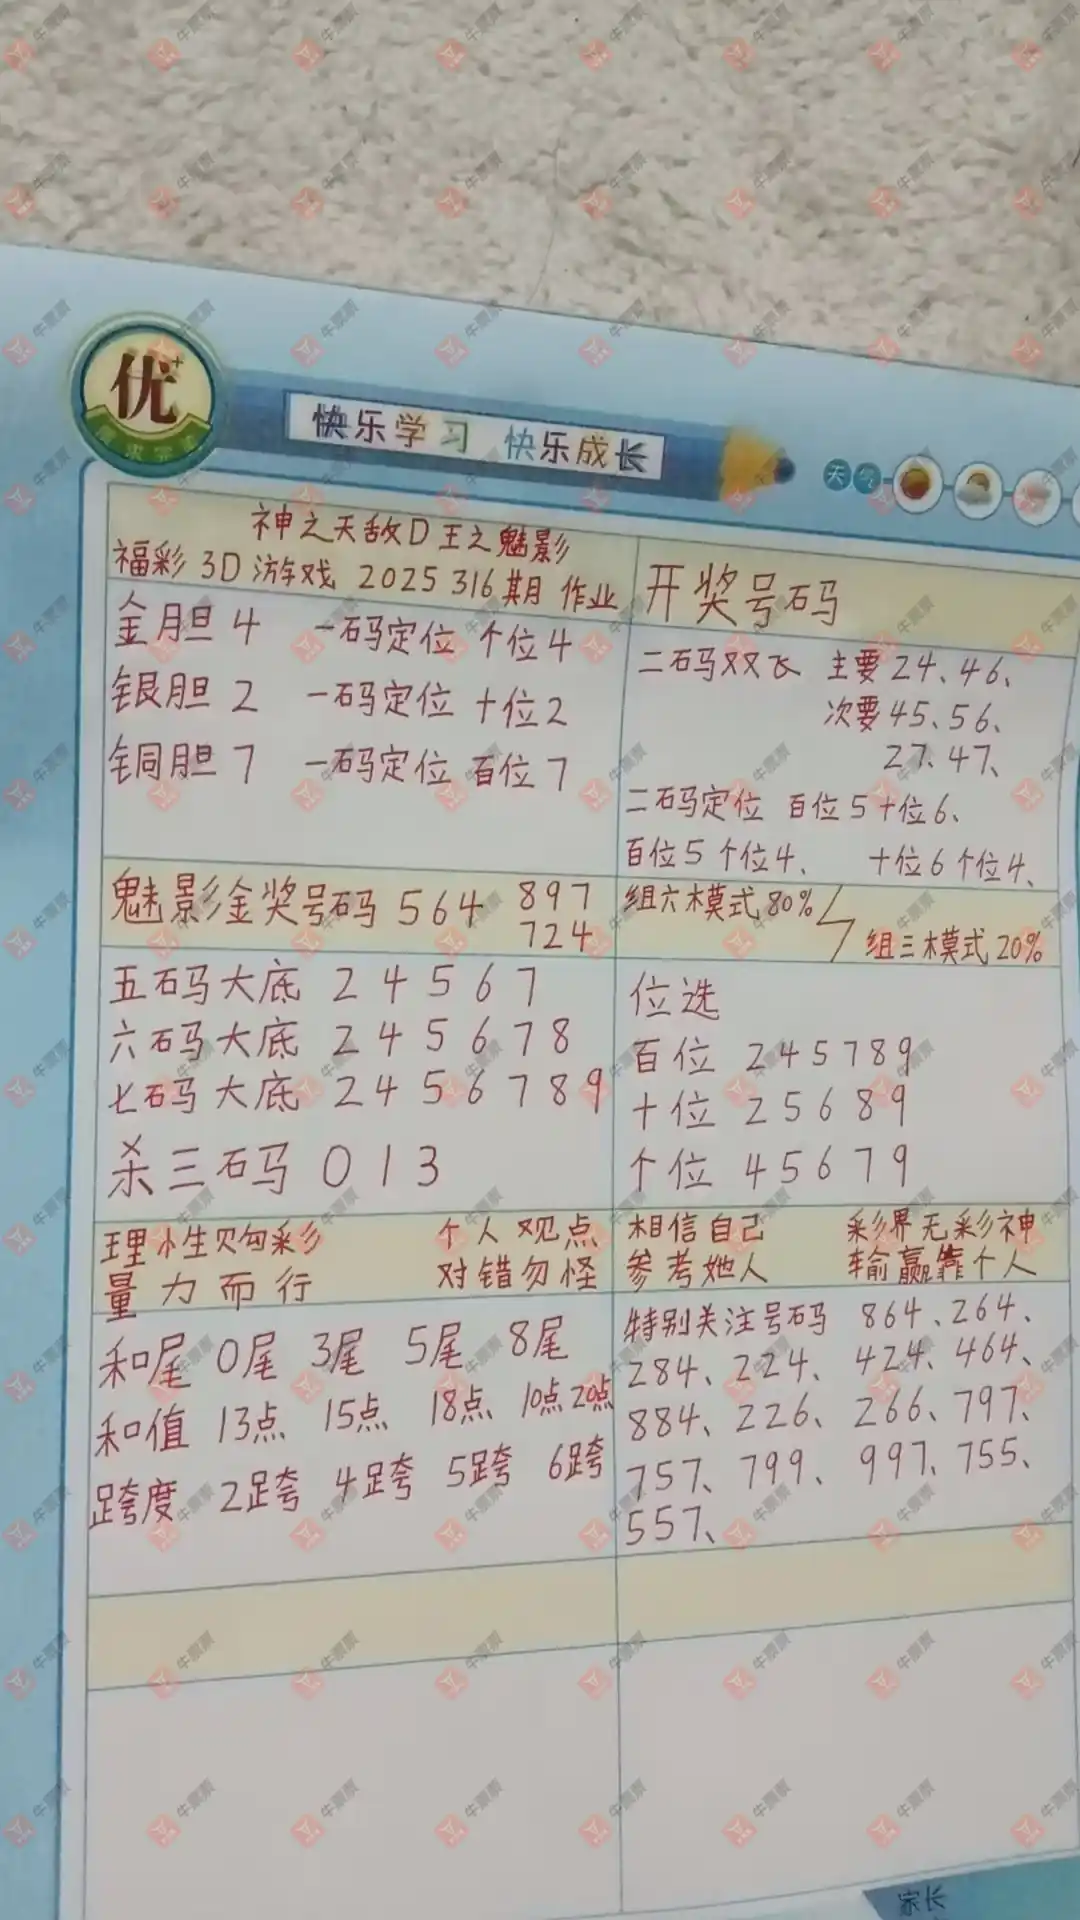 优+
快乐学习 快乐成长
天气
神之天敌D王之魅影
福彩 3D 游戏 2025 316期 作业
金胆 4 一码定位 个位4
银胆 2 一码定位 十位2
铜胆 7 一码定位 百位7
开奖号码
二码双飞 主要 24、46、
次要 45、56、
27、47、
二码定位 百位5十位6、
百位5个位4、 十位6个位4、
魅影金奖号码 564 897
724
组六模式80%
组三模式20%
五码大底 2 4 5 6 7
六码大底 2 4 5 6 7 8
七码大底 2 4 5 6 7 8 9
杀三码 0 1 3
位选
百位 2 4 5 7 8 9
十位 2 5 6 8 9
个位 4 5 6 7 9
理性购彩 个人观点
量力而行 对错勿怪
相信自己 彩界无彩神
参考她人 输赢靠个人
和尾 0尾 3尾 5尾 8尾
和值 13点 15点 18点 10点 20点
跨度 2跨 4跨 5跨 6跨
特别关注号码 864、264、
284、224、424、464、
884、226、266、797、
757、799、997、755、
557、
家长
牛票票